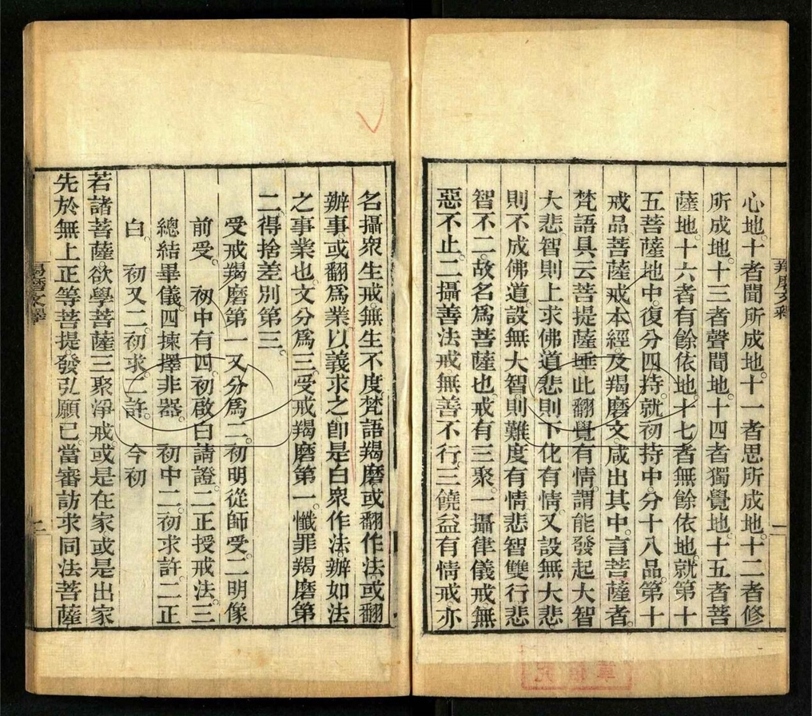 心地。十者聞所成地。十一者思所成地。十二者修
所成地。十三者聲聞地。十四者獨覺地。十五者菩
薩地。十六者有餘依地。十七者無餘依地。就第十
五菩薩地中。復分四持。就初持中分十八品。第十
戒品。菩薩戒本經及羯磨文咸出其中。言菩薩者。
梵語具云菩提薩埵。此翻覺有情。謂能發起大智
大悲。智則上求佛道。悲則下化有情。又設無大悲
則不成佛道。設無大智則難度有情。悲智雙行。悲
智不二。故名為菩薩也。戒有三聚。一攝律儀戒。無
惡不止。二攝善法戒。無善不行。三饒益有情戒。亦
名攝眾生戒。無生不度。梵語羯磨。或翻作法。或翻
辦事。或翻為業。以義求之。即是白眾作法。辦如法
之事業也。文分為三。受戒羯磨第一。懺罪羯磨第
二。得捨差別第三。
受戒羯磨第一。又分為二。初明從師受。二明像
前受。 初中有四。初啟白請證。二正授戒法。三
總結畢儀。四揀擇非器。 初中二。初求許。二正
白。 初又二。初求。二許。 今初
若諸菩薩。欲學菩薩三聚淨戒。或是在家。或是出家
先於無上正等菩提。發弘願已。當審訪求同法菩薩